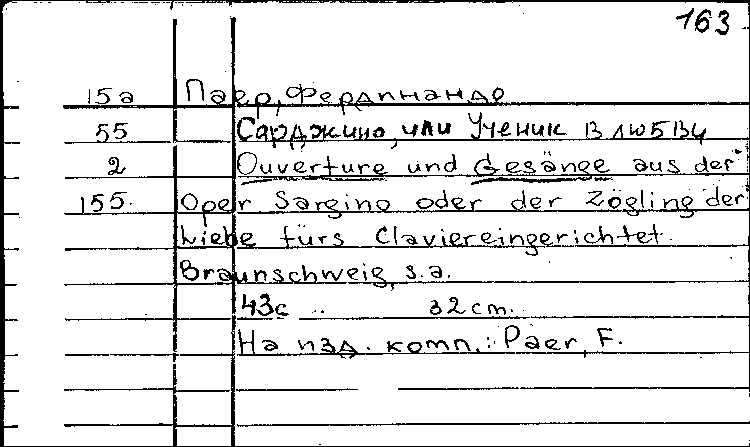 163
15а Паер, Фердинандо
55 Сарджино, или Ученик влюбви
2 Ouverture und Gesänge aus der
155. Oper Sargino oder der Zögling der
Liebe fürs Claviereingerichtet.
Braunschweig, s.a.
43с .. 32 cm.
На изд. комп.: Paer, F.